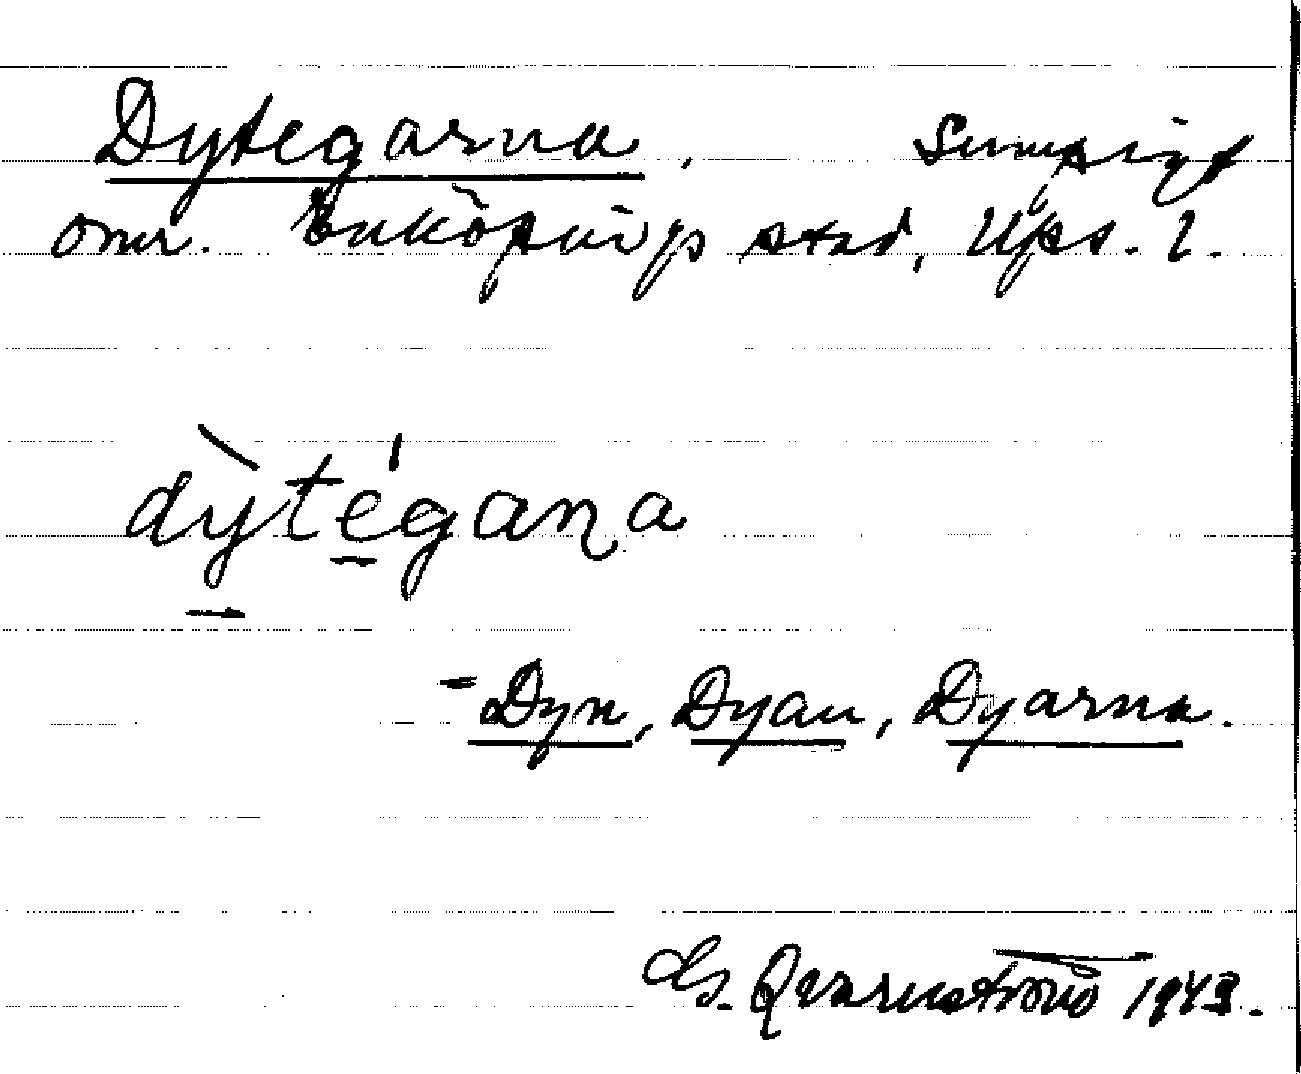 Dytegarna. Sumpigt
omr. Enköpings stad, Upps. l.
dỳte̱ˈgaṇa
- Dyn, Dyan, Dyarna.
Qvarnström 1943.